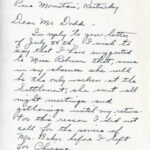 Pine Mountain, Kentucky
Dear Mr. Dodd -
In reply to your letter
of July 24th, I must
say that I had suggested
to Miss Robison that, since
in my absence she would
be the only worker at the
Settlement, she can't all
night meetings and
gatherings until my return
For this reason I did not
call for the services of
Mr. Baker before I left
for Chicago